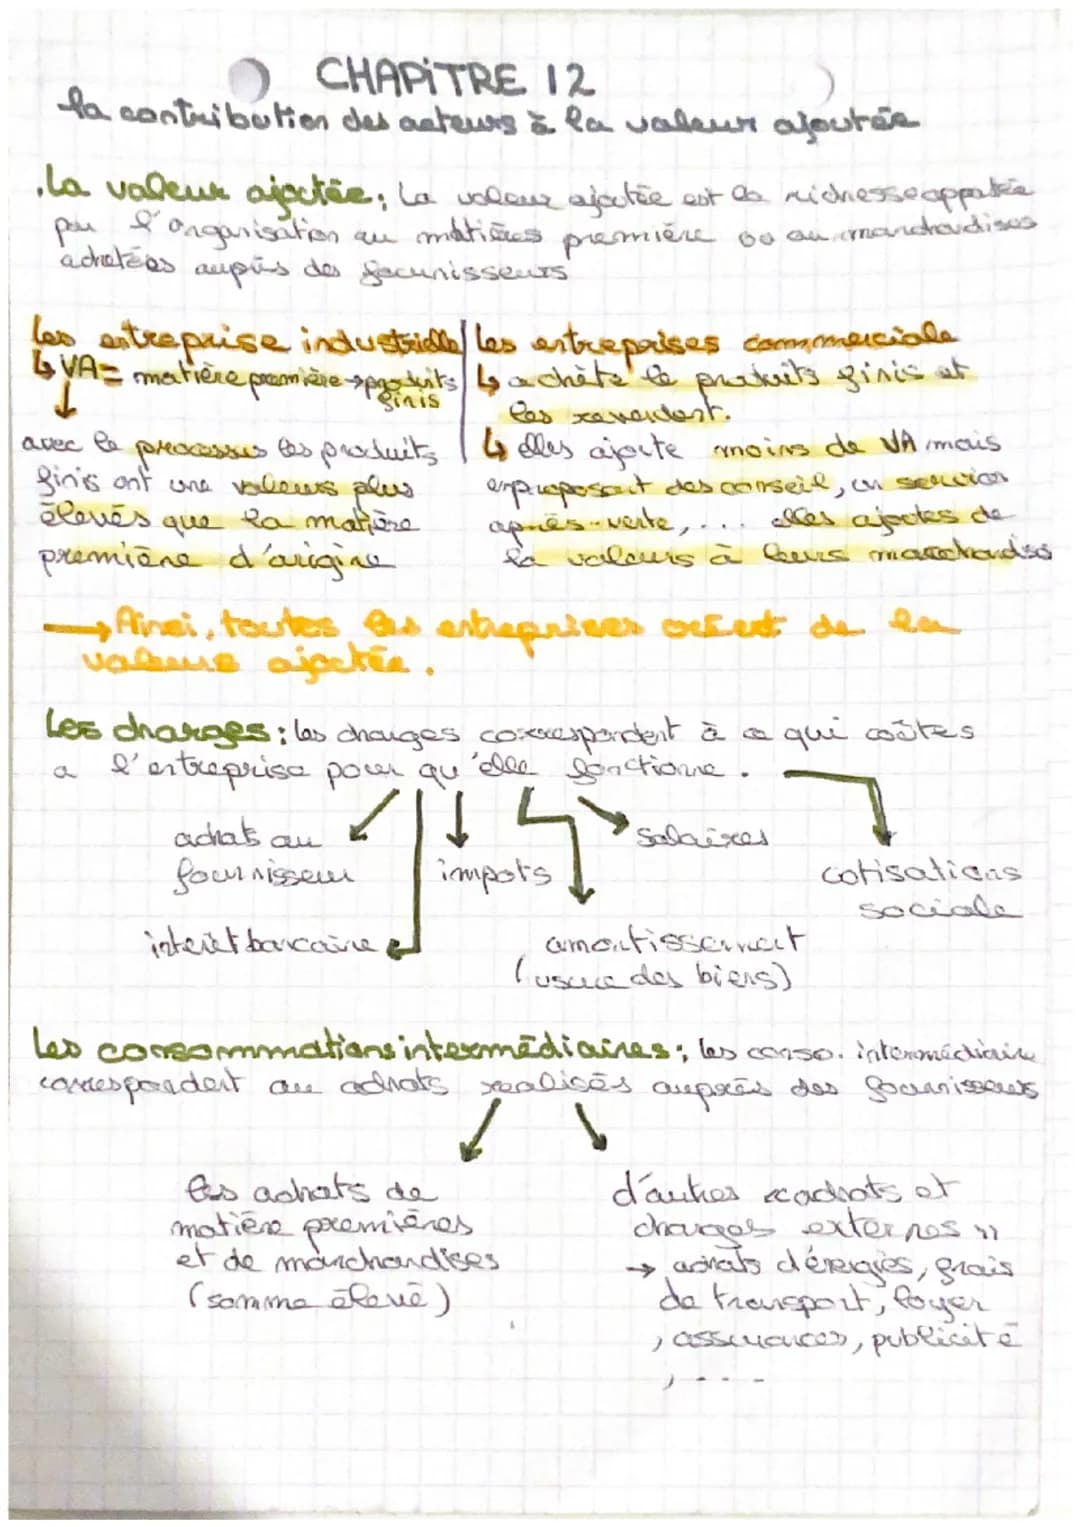 CHAPITRE 12
la contribution des acteurs à la valeur ajoutée
.La valeur ajoutée; La valeur ajoutée est la richesse appotée
par l'organisation au matières première ou au marchandises
achetées auprès des fournisseurs
les entreprise industrielle
↳ VA = matière première → produits
finis
avec le processus les produits
finis ont une valeurs plus
élevés que la matière
première d'origine
les entreprises commerciale
↳ achète le produits finis et
les revendent.
↳ elles ajoute moins de VA mais
enproposant des conseil, un service
après-vente,... elles ajoutes de
la valeurs à leurs marchandises
→ Ainsi, toutes les entreprises créent de la
valeur ajoutée.
Les charges; les charges correspondent à ce qui coûtes
a l'entreprise pour qu'elle fonctionne.
achats au
fournisseur
impots
salaires
cotisations
sociale
intérêt bancaire
amortissement
(usure des biens)
Les consommations intermédiaires; les conso. intermédiaire
correspondent au achats realisés auprès des fournisseurs
les achats de
matière premières
et de marchandises
(somme élevé)
d'autres «achats et
charges externes»
→ achats d'énergies, frais
de transport, loyer
, assurances, publicité
, - - -